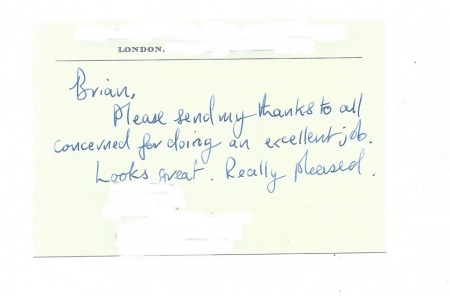 LONDON.
Brian,
Please send my thanks to all
concerned for doing an excellent job.
Looks great. Really pleased.